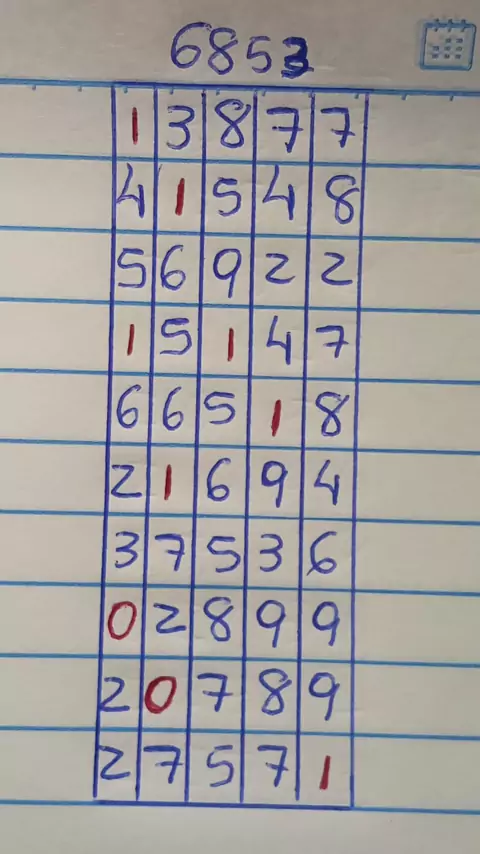 6853
1 3 8 7 7
4 1 5 4 8
5 6 9 2 2
1 5 1 4 7
6 6 5 1 8
2 1 6 9 4
3 7 5 3 6
0 2 8 9 9
2 0 7 8 9
2 7 5 7 1